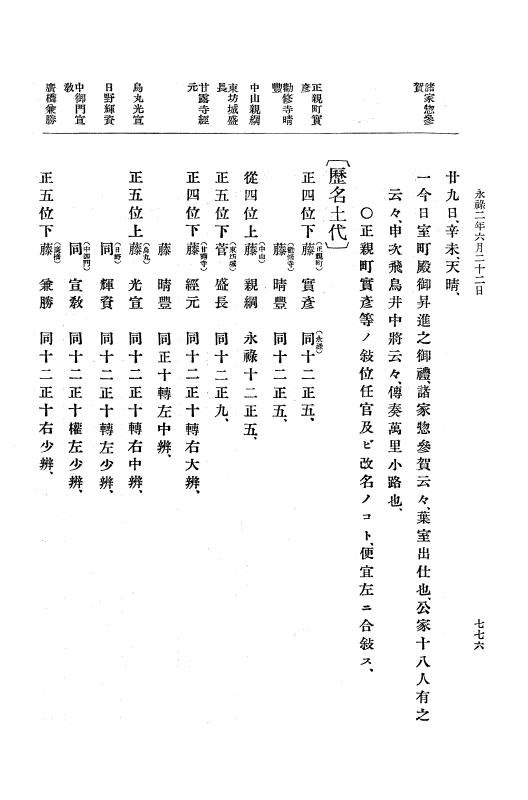 永祿二年六月二十二日
七七六
諸家惣參賀
廿九日、辛未、天晴、
一今日室町殿御昇進之御禮、諸家惣參賀云々、葉室出仕也、公家十八人有之
云々、申次飛鳥井中將云々、傳奏萬里小路也、
〇正親町實彥等ノ敍位任官及ビ改名ノコト、便宜左ニ合敍ス、
〔歷名土代〕
正親町實彥
正四位下藤(正親町)實彥 同(永祿)十二正五、
勸修寺晴豐
藤(勸修寺)晴豐 同十二正五、
中山親綱
從四位上藤(中山)親綱 永祿十二正五、
東坊城盛長
正五位下菅(東坊城)盛長 同十二正九、
甘露寺經元
正四位下藤(甘露寺)經元 同十二正十轉右大辨、
藤 晴豐 同正十轉左中辨、
烏丸光宣
正五位上藤(烏丸)光宣 同十二正十轉右中辨、
日野輝資
同(日野)輝資 同十二正十轉左少辨、
中御門宣敎
同(中御門)宣敎 同十二正十權左少辨、
廣橋兼勝
正五位下藤(廣橋)兼勝 同十二正十右少辨、